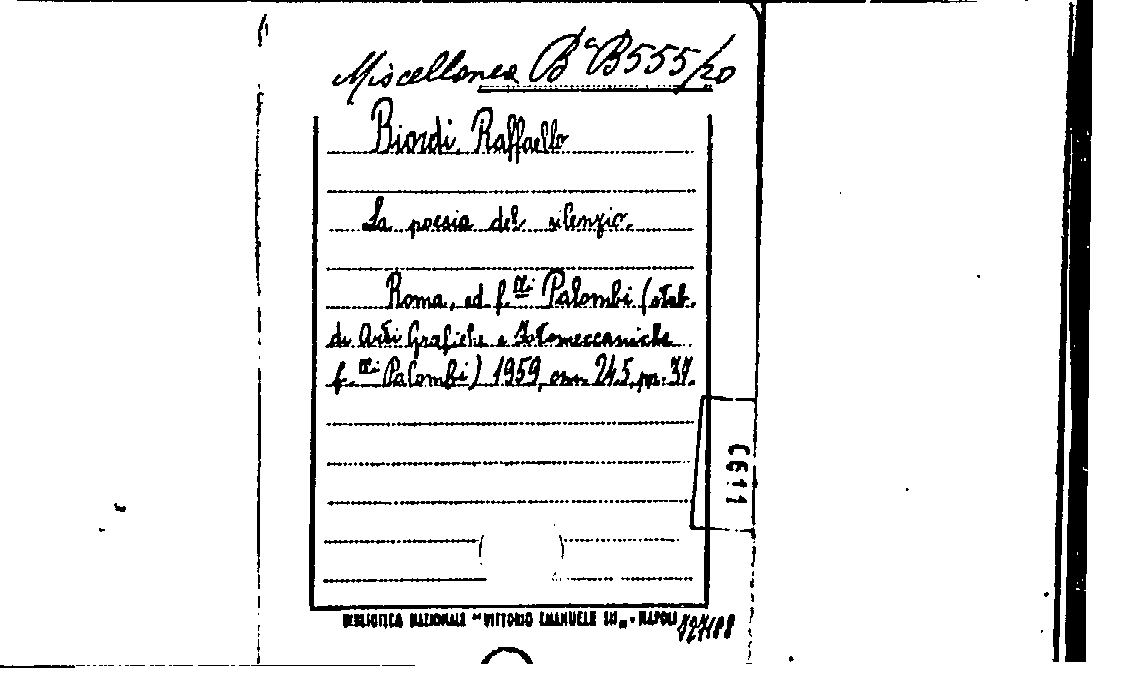 Miscellanea Bª B555/20
Biordi, Raffaello
La poesia del silenzio.
Roma, ed f.lli Palombi (stab.
di Arti Grafiche e Fotomeccaniche
f.lli Palombi) 1959, cm. 24.5, pp. 37.
C611
BIBLIOTECA NAZIONALE "VITTORIO EMANUELE III" - NAPOLI